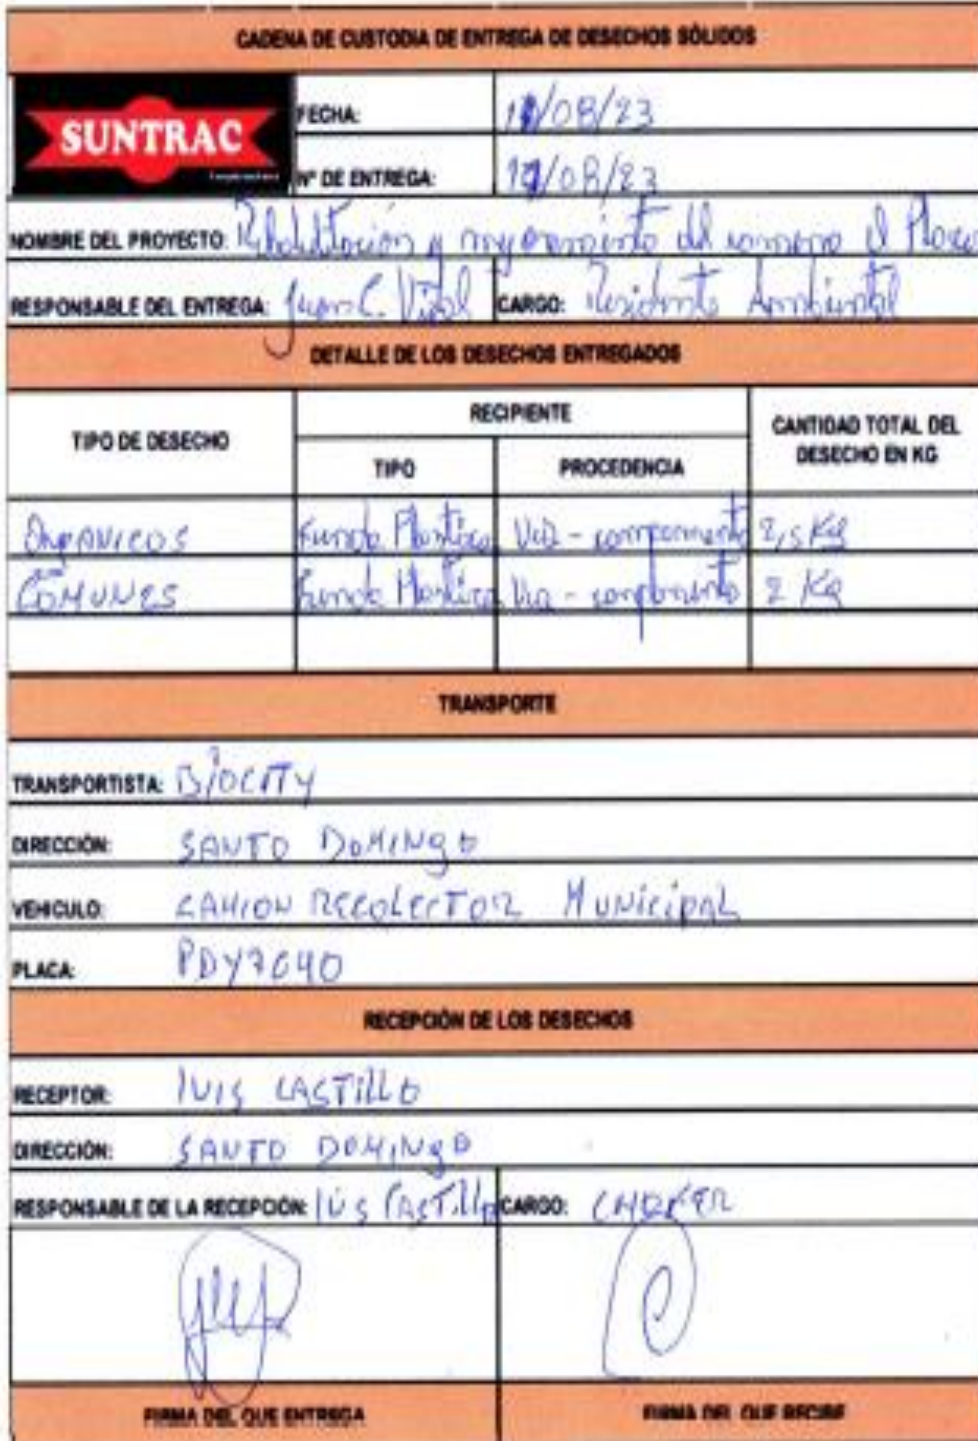 CADENA DE CUSTODIA DE ENTREGA DE DESECHOS SÓLIDOS
SUNTRAC
FECHA: /08/23
Nº DE ENTREGA: /08/23
NOMBRE DEL PROYECTO: y del
RESPONSABLE DEL ENTREGA: Juan C. CARGO: Residente Ambiental
DETALLE DE LOS DESECHOS ENTREGADOS
TIPO DE DESECHO RECIPIENTE CANTIDAD TOTAL DEL DESECHO EN KG
TIPO PROCEDENCIA
ORGANICOS Funda Plastica Via - 2,5 Kg
COMUNES Funda Plastica Via - 2 Kg
TRANSPORTE
TRANSPORTISTA: BIOCITY
DIRECCIÓN: SANTO DOMINGO
VEHICULO: CAMION RECOLECTOR MUNICIPAL
PLACA:
RECEPCIÓN DE LOS DESECHOS
RECEPTOR: LUIS CASTILLO
DIRECCIÓN: SANTO DOMINGO
RESPONSABLE DE LA RECEPCIÓN: LUIS CASTILLO CARGO: CHOFER
FIRMA DEL QUE ENTREGA FIRMA DEL QUE RECIBE